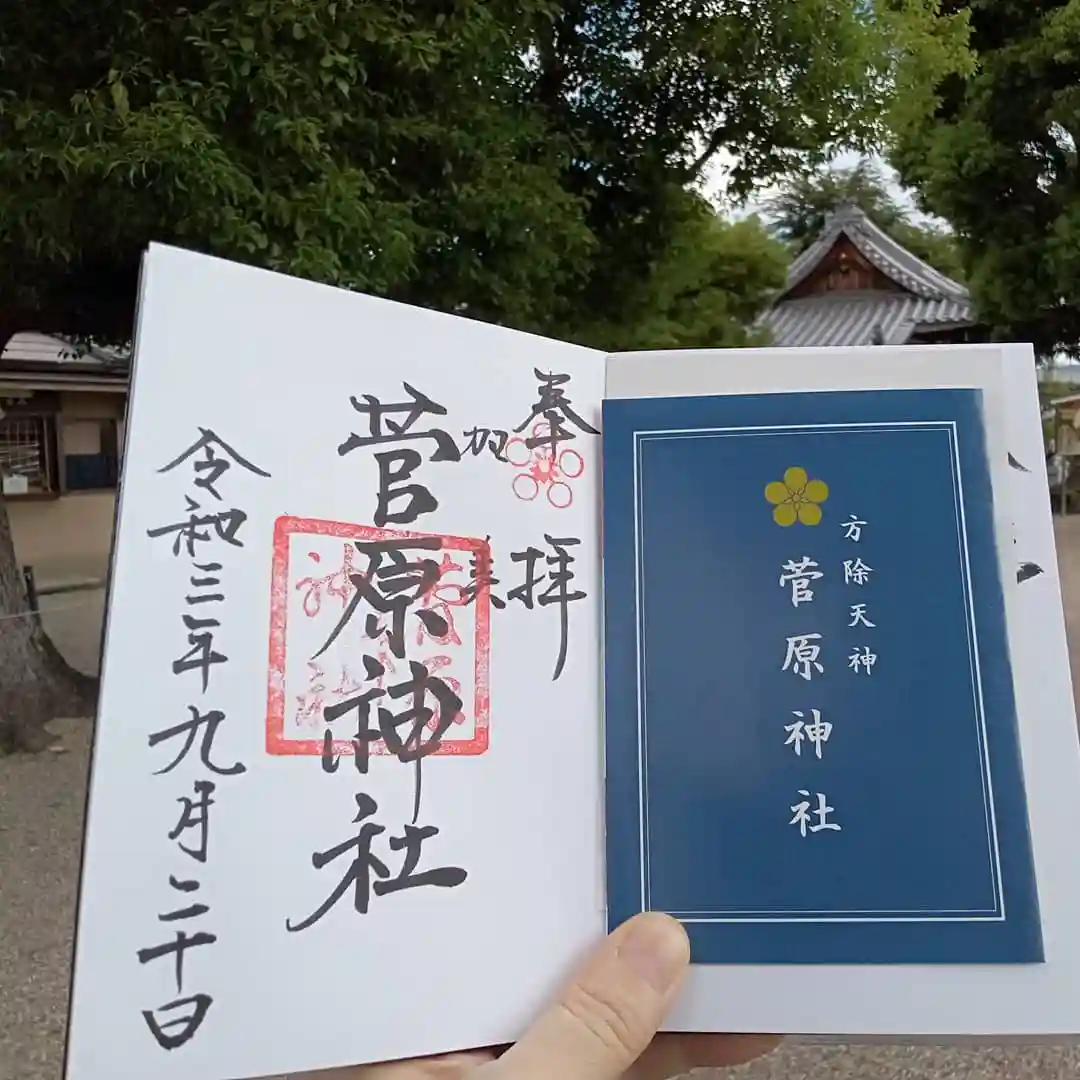 奉拝
加美
菅原神社
令和三年九月二十日
方除天神
菅原神社